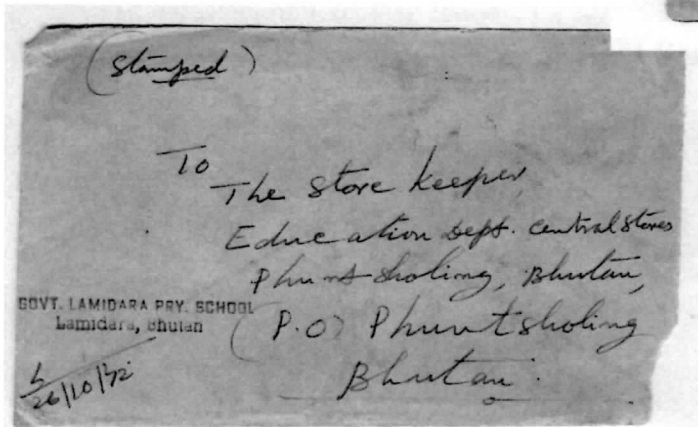 (Stamped)
To
The Store Keeper,
Education Dept. Central Stores
Phuntsholing, Bhutan,
(P.O) Phuntsholing
Bhutan.
GOVT. LAMIDARA PRY. SCHOOL
Lamidara, Bhutan
26/10/72